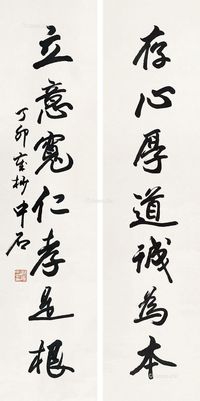 存心厚道诚為本
立意寬仁孝是根
丁卯
中石